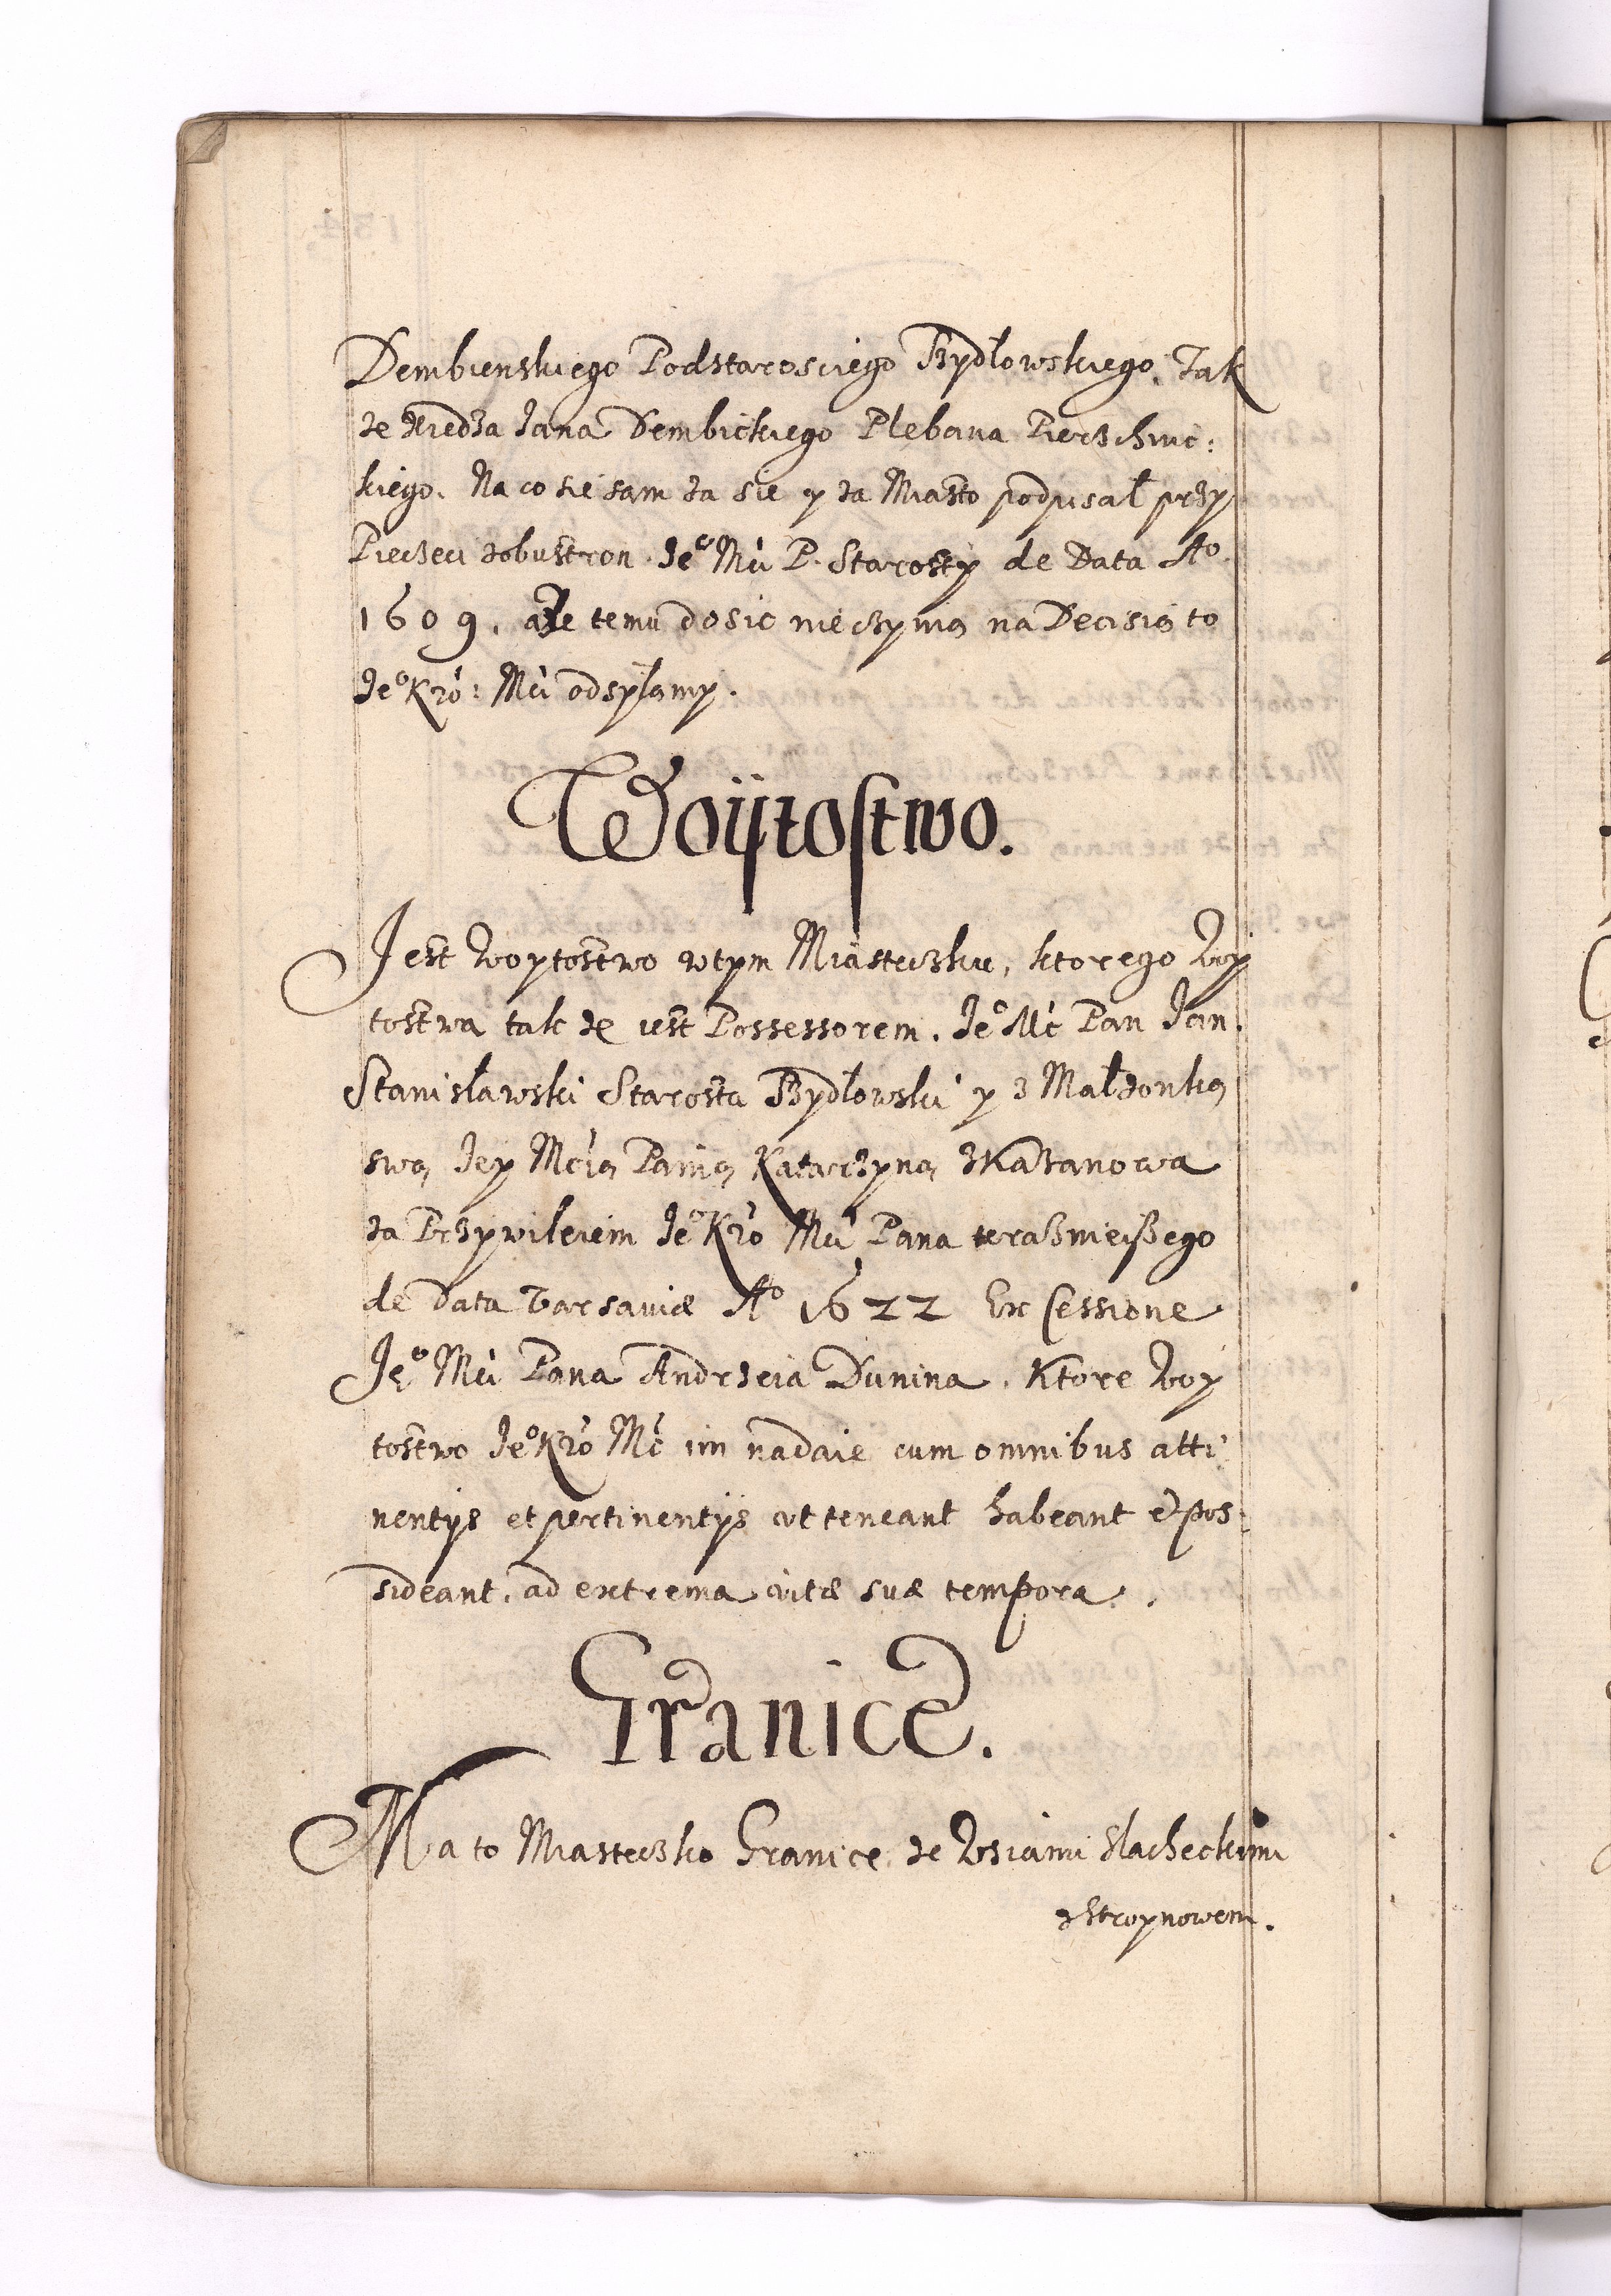 Dembienskiego Podstarosciego Bydłowskiego. Tak
że Xiedza Jana Dembickiego Plebana Pierzchnic:
kiego. Na co sie sam za sie y za Miasto podpisał przy
Pieczeci zobustron Jeº Mci P. Starosty de Data Aº
1609. aże temu dosic nieczynią na Decisią to
Jeº Kró: Mci odsyłamy.
Woÿtostwo.
Jest Woytostwo wtym Miasteczku, ktorego Woy
tostwa tak że iest Possessorem. Jeº Mć Pan Jan
Stanisławski Starosta Bydłowski y z Małżonką
swą Jey Mcią Panią Katarzyną zKazanowa
za Przywileiem Jeº Kró Mci Pana teraßnieißego
de Data Varsaviæ Aº 1622 Ex Cessione
Jeº Mci Pana Andrzeia Dunina. Ktore Woy
tostwo Jeº Kró Mć im nadaie cum omnibus atti:
nentijs et pertinentijs ut teneant habeant et pos:
sideant, ad extrema vitæ suæ tempora.
Granice.
Ma to Miasteczko Granice ze Wsiami Slacheckimi
zStroynowem.